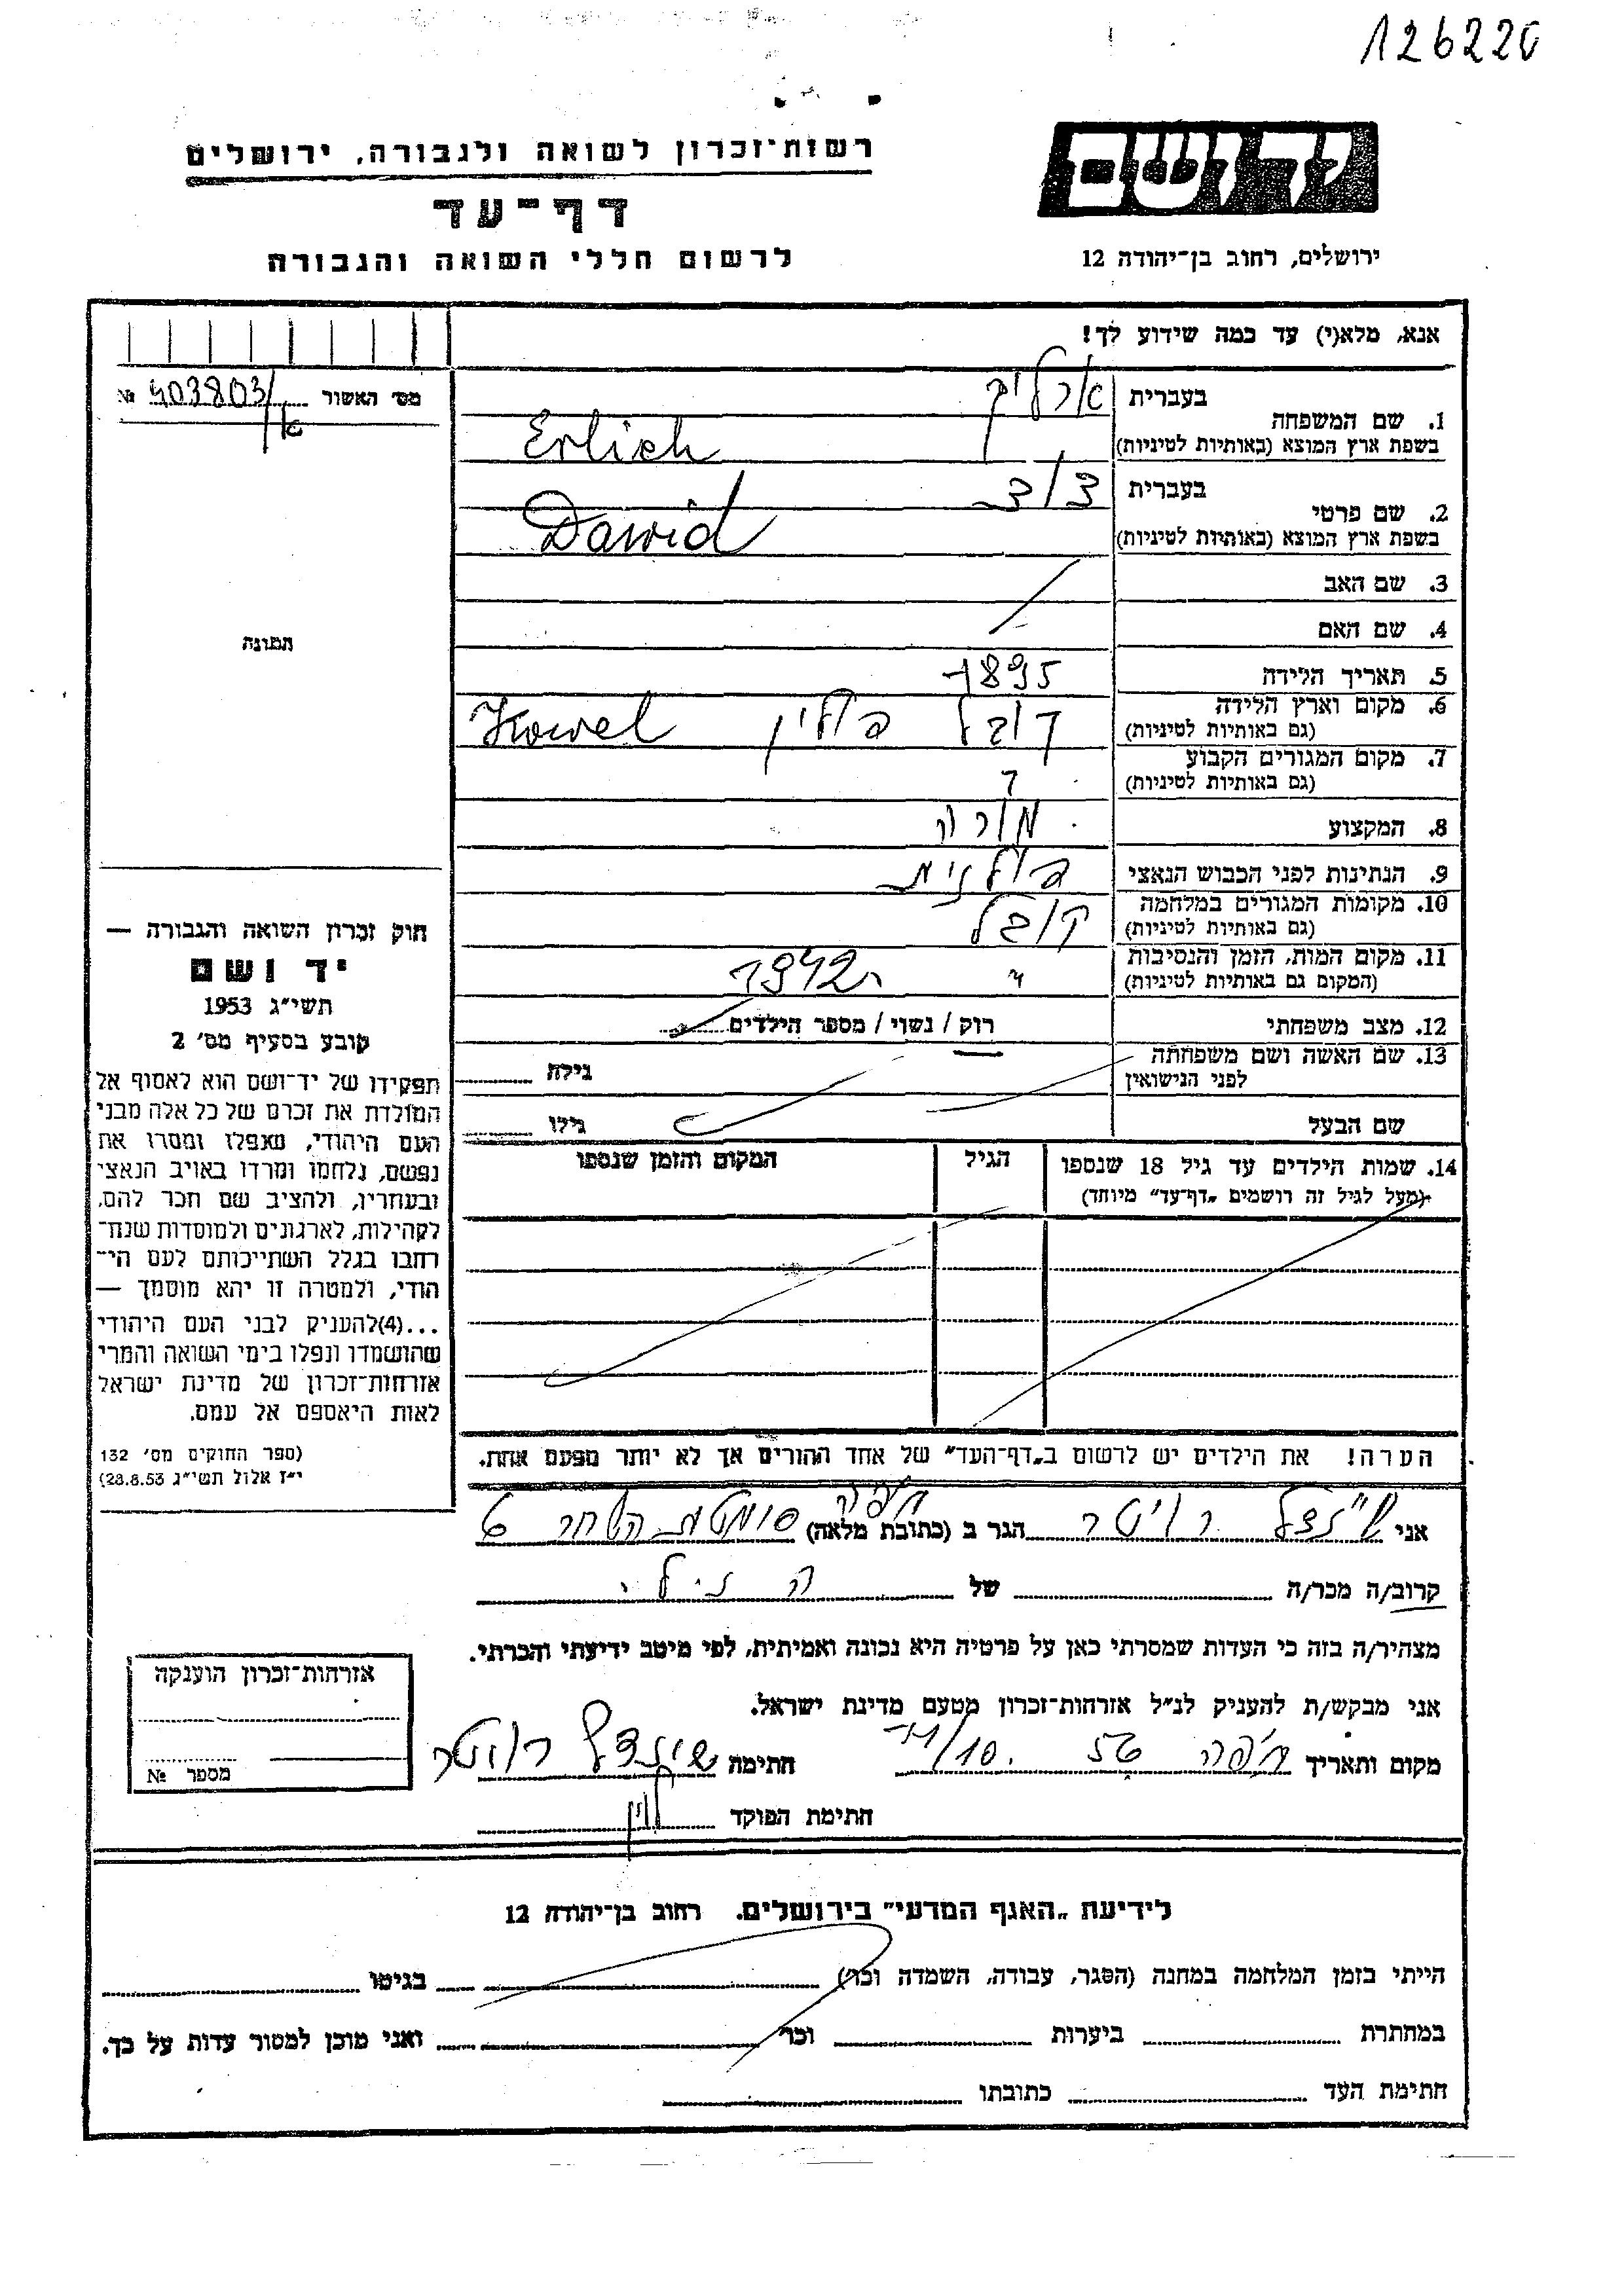 126220
רשות־זכרון לשואה ולגבורה, ירושלים
יד ושם
דף־עד
לרשום חללי השואה והגבורה
ירושלים, רחוב בן־יהודה 12
אנא, מלא(י) עד כמה שידוע לך!
מס׳ האשור 403803 №
1. שם המשפחה
בעברית ארליך
בשפת ארץ המוצא (באותיות לטיניות) Erlich
2. שם פרטי
בעברית דוד
בשפת ארץ המוצא (באותיות לטיניות) Dawid
3. שם האב
4. שם האם
תמונה
5. תאריך הלידה 1895
6. מקום וארץ הלידה (גם באותיות לטיניות) קובל פולין Kowel
7. מקום המגורים הקבוע (גם באותיות לטיניות)
8. המקצוע מורה
9. הנתינות לפני הכבוש הנאצי פולנית
10. מקומות המגורים במלחמה (גם באותיות לטיניות) קובל
11. מקום המות, הזמן והנסיבות (המקום גם באותיות לטיניות) " 1942
12. מצב משפחתי רוק / נשוי / מספר הילדים
13. שם האשה ושם משפחתה לפני הנישואין גילה
שם הבעל גילו
14. שמות הילדים עד גיל 18 שנספו
(מעל לגיל זה רושמים „דף־עד" מיוחד)
הגיל
המקום והזמן שנספו
הערה! את הילדים יש לרשום ב„דף־העד" של אחד ההורים אך לא יותר מפעם אחת.
חוק זכרון השואה והגבורה —
יד ושם
תשי״ג 1953
קובע בסעיף מס׳ 2
תפקידו של יד־ושם הוא לאסוף אל
המולדת את זכרם של כל אלה מבני
העם היהודי, שנפלו ומסרו את
נפשם, נלחמו ומרדו באויב הנאצי
ובעוזריו, ולהציב שם וזכר להם,
לקהילות, לארגונים ולמוסדות שנח־
רבו בגלל השתייכותם לעם הי־
הודי, ולמטרה זו יהא מוסמך —
...(4)להעניק לבני העם היהודי
שהושמדו ונפלו בימי השואה והמרי
אזרחות־זכרון של מדינת ישראל
לאות היאספם אל עמם.
(ספר החוקים מס׳ 132
י״ז אלול תשי״ג 28.8.53)
אני שיינדל רויטר הגר ב (כתובת מלאה) חיפה סימטת השחר 6
קרוב/ה מכר/ה של
מצהיר/ה בזה כי העדות שמסרתי כאן על פרטיה היא נכונה ואמיתית, לפי מיטב ידיעתי והכרתי.
אני מבקש/ת להעניק לנ״ל אזרחות־זכרון מטעם מדינת ישראל.
מקום ותאריך חיפה 56 חתימה שיינדל רויטר
חתימת הפוקד
אזרחות־זכרון הוענקה
מספר №
לידיעת „האגף המדעי" בירושלים. רחוב בן־יהודה 12
הייתי בזמן המלחמה במחנה (הסגר, עבודה, השמדה וכו׳) בגיטו
במחתרת ביערות וכו׳ ואני מוכן למסור עדות על כך.
חתימת העד כתובתו